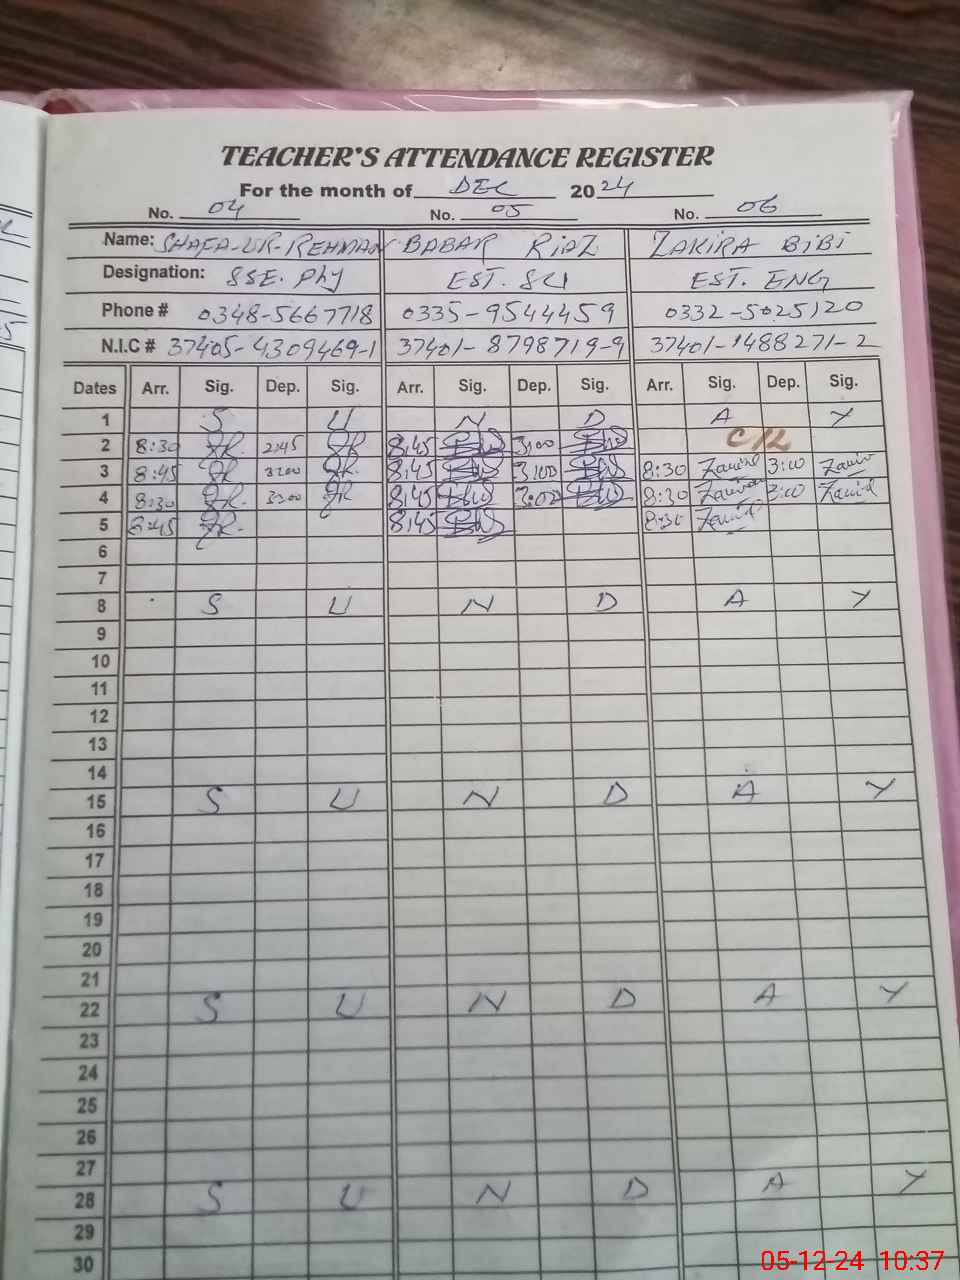 TEACHER'S ATTENDANCE REGISTER
For the month of DEC 2024
No. 04 No. 05 No. 06
Name: SHAFA-UR-REHMAN BABAR RIAZ ZAKIRA BIBI
Designation: SSE. Phy EST. SCI EST. ENG
Phone # 0348-5667718 0335-9544459 0332-5025120
N.I.C # 37405-4309469-1 37401-8798719-9 37401-1488271-2
Dates Arr. Sig. Dep. Sig. Arr. Sig. Dep. Sig. Arr. Sig. Dep. Sig.
1 S U N D A Y
2 8:30 2:45 8:45 3:00 C/L
3 8:45 3:00 8:45 3:00 8:30 3:00
4 8:30 3:00 8:45 3:00 8:30 3:00
5 8:45 8:45 8:30
6
7
8 S U N D A Y
9
10
11
12
13
14
15 S U N D A Y
16
17
18
19
20
21
22 S U N D A Y
23
24
25
26
27
28 S U N D A Y
29
30
05-12-24 10:37